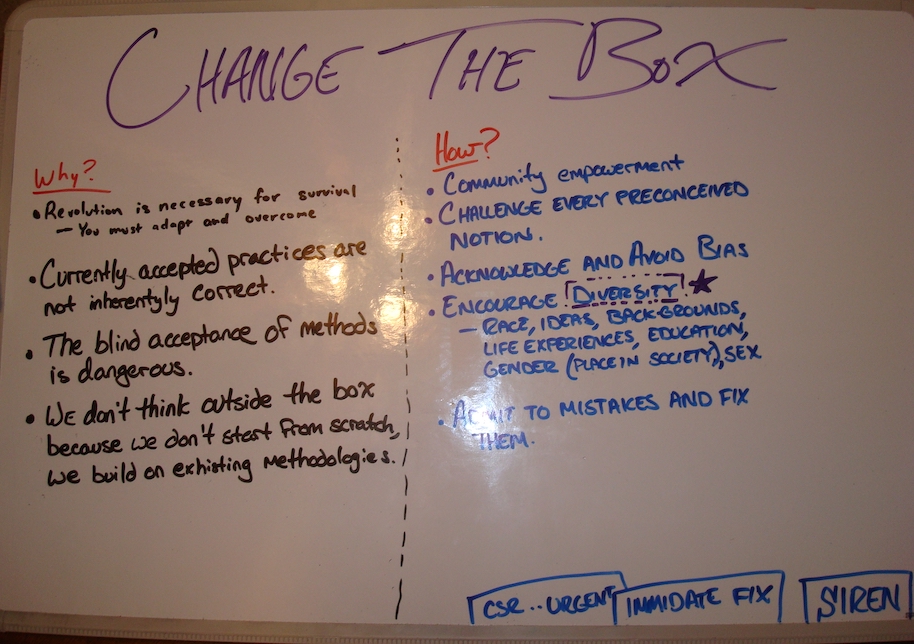 CHANGE THE BOX
Why?
• Revolution is necessary for survival
— You must adapt and overcome
• Currently accepted practices are
not inherentyly correct.
• The blind acceptance of methods
is dangerous.
• WE don't think outside the box
because we don't start from scratch,
we build on exhisting methodologies.
How?
• Community empowerment
• CHALLENGE EVERY PRECONCEIVED
NOTION.
• ACKNOWLEDGE AND AVOID BIAS
• ENCOURAGE DIVERSITY! ★
— RACE, IDEAS, BACK-GROUNDS,
LIFE EXPERIENCES, EDUCATION,
GENDER (PLACE IN SOCIETY), SEX
• ADMIT TO MISTAKES AND FIX
THEM.
CSR .. URGENT
IMMIDATE FIX
SIREN